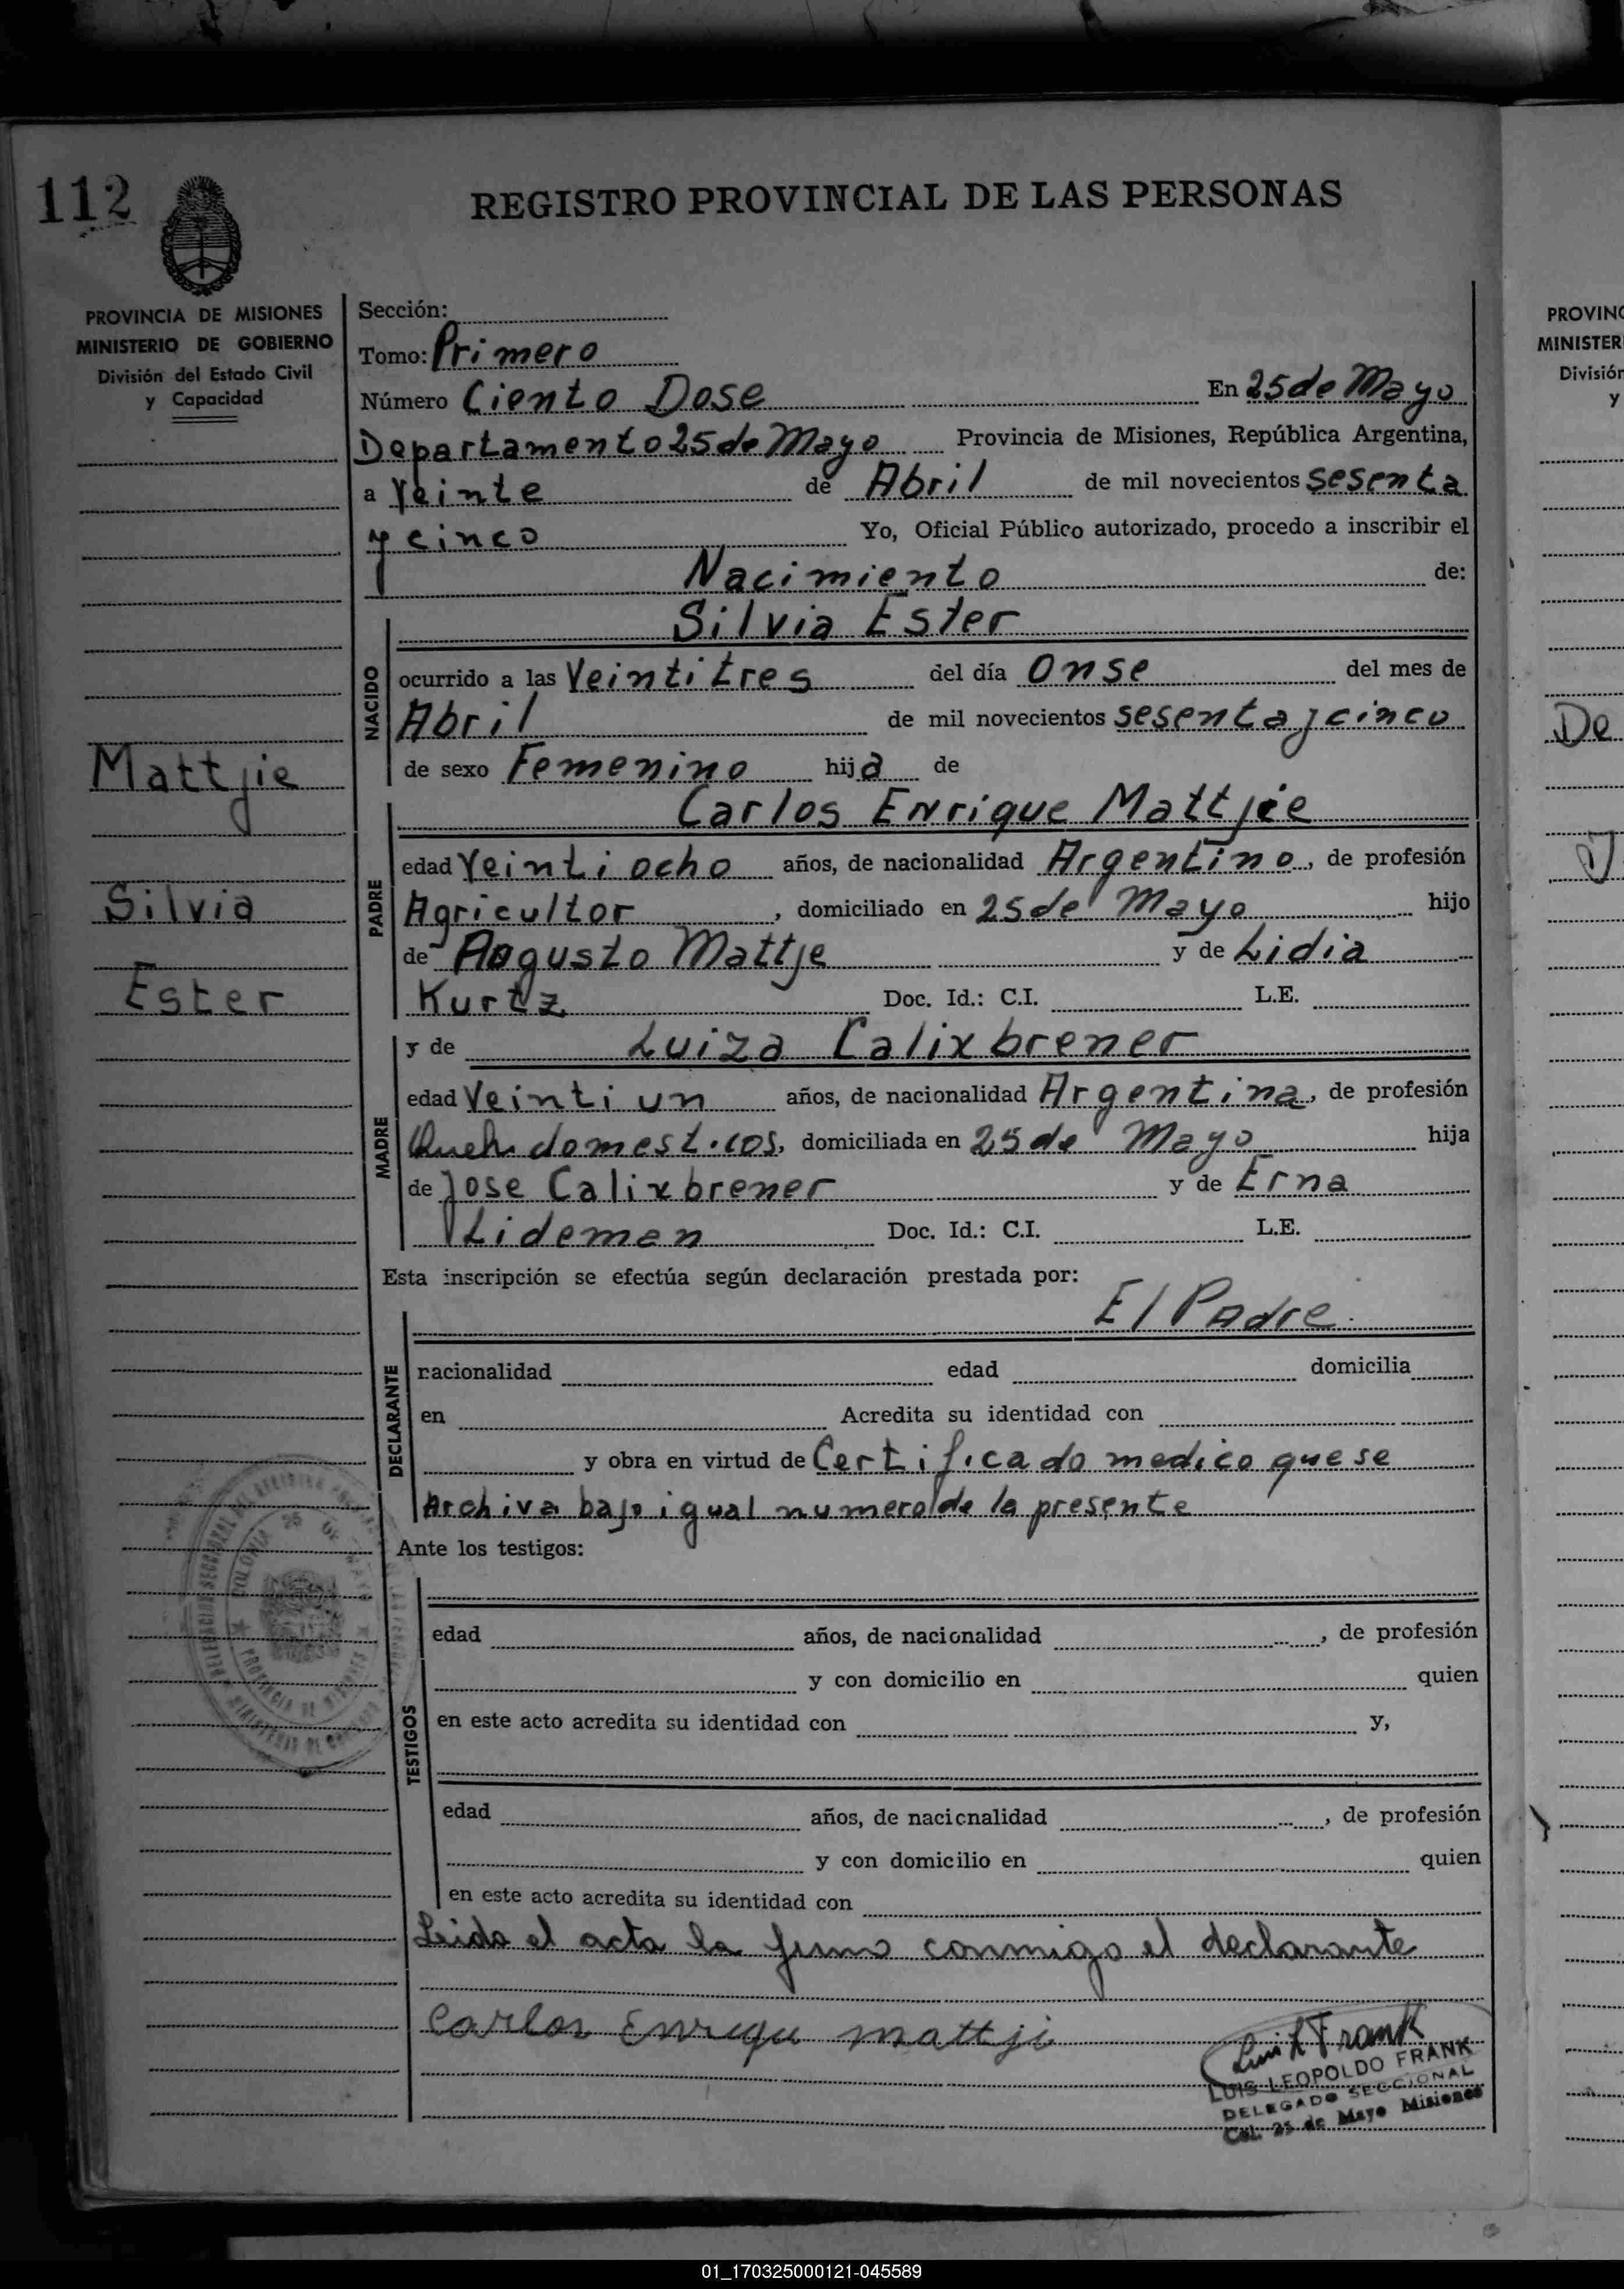 112
REGISTRO PROVINCIAL DE LAS PERSONAS
PROVINCIA DE MISIONES
MINISTERIO DE GOBIERNO
División del Estado Civil
y Capacidad
Mattjie
Silvia
Ester
Sección:
Tomo: Primero
Número Ciento Dose En 25 de Mayo
Departamento 25 de Mayo Provincia de Misiones, República Argentina,
a Veinte de Abril de mil novecientos sesenta
y cinco Yo, Oficial Público autorizado, procedo a inscribir el
Nacimiento de:
Silvia Ester
NACIDO
ocurrido a las Veintitres del día Onse del mes de
Abril de mil novecientos sesenta y cinco
de sexo Femenino hija de
Carlos Enrique Mattjie
PADRE
edad Veinti ocho años, de nacionalidad Argentino, de profesión
Agricultor, domiciliado en 25 de Mayo hijo
de Augusto Mattje y de Lidia
Kurtz Doc. Id.: C.I. L.E.
y de Luiza Calixbrener
MADRE
edad Veinti un años, de nacionalidad Argentina, de profesión
domesticos, domiciliada en 25 de Mayo hija
de Jose Calixbrener y de Erna
Lideman Doc. Id.: C.I. L.E.
Esta inscripción se efectúa según declaración prestada por:
El Padre.
DECLARANTE
nacionalidad edad domicilia
en Acredita su identidad con
y obra en virtud de Certificado medico que se
Archiva bajo igual numero de la presente
Ante los testigos:
TESTIGOS
edad años, de nacionalidad , de profesión
y con domicilio en quien
en este acto acredita su identidad con y,
edad años, de nacionalidad , de profesión
y con domicilio en quien
en este acto acredita su identidad con
Leida el acta la firmo conmigo el declarante
Carlos Enrequ mattji
Luis L Frank
LUIS LEOPOLDO FRANK
DELEGADO SECCIONAL
Col. 25 de Mayo Misiones
COLONIA 25 DE MAYO
PROVINCIA DE MISIONES
PROVINC
MINISTER
División
y
De
01_170325000121-045589